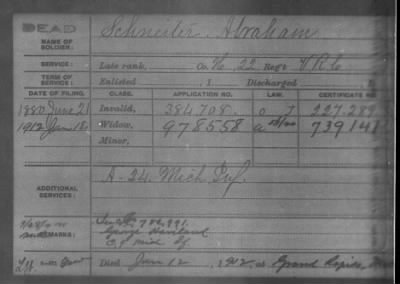 DEAD
NAME OF SOLDIER: Schneiter, Abraham
SERVICE: Late rank, Co. 22 Reg't V.R.C.
TERM OF SERVICE: Enlisted , 1 Discharged , 1
DATE OF FILING. CLASS. APPLICATION NO. LAW. CERTIFICATE NO.
1880 June 21 Invalid, 384708 227.289
1912 Widow, 978558 739148
Minor,
ADDITIONAL SERVICES: A-24. Mich Inf.
REMARKS:
George
Mich
Died Jan 12, 1912, at Grand Rapids,